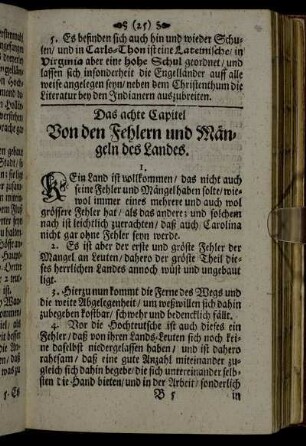 (25)
5. Es befinden sich auch hin und wieder Schu-
len/ und in Carls-Thon ist eine Lateinische/ in
Virginia aber eine hohe Schul geordnet/ und
lassen sich insonderheit die Engelländer auff alle
weise angelegen seyn/ neben dem Christenthum die
Literatur bey den Indianern auszubreiten.
Das achte Capitel
Von den Fehlern und Män-
geln des Landes.
1.
KEin Land ist vollkommen/ das nicht auch
seine Fehler und Mängel haben solte/ wie-
wol immer eines mehrere und auch wol
grössere Fehler hat/ als das andere; und solchem
nach ist leichtlich zuerachten/ daß auch Carolina
nicht gar ohne Fehler seyn werde.
2. Es ist aber der erste und gröste Fehler der
Mangel an Leuten/ dahero der gröste Theil die-
ses herrlichen Landes annoch wüst und ungebaut
ligt.
3. Hierzu nun kommt die Ferne des Wegs und
die weite Abgelegenheit/ um weßwillen sich dahin
zubegeben kostbar/ schwehr und bedencklich fällt.
4. Vor die Hochteutsche ist auch dieses ein
Fehler/ daß von ihren Lands-Leuten sich noch kei-
ne daselbst niedergelassen haben/ und ist dahero
rahtsam/ daß eine gute Anzahl miteinander zu-
gleich sich dahin begebe/ die sich untereinander selb-
sten die Hand bieten/ und in der Arbeit/ sonderlich
B 5
in